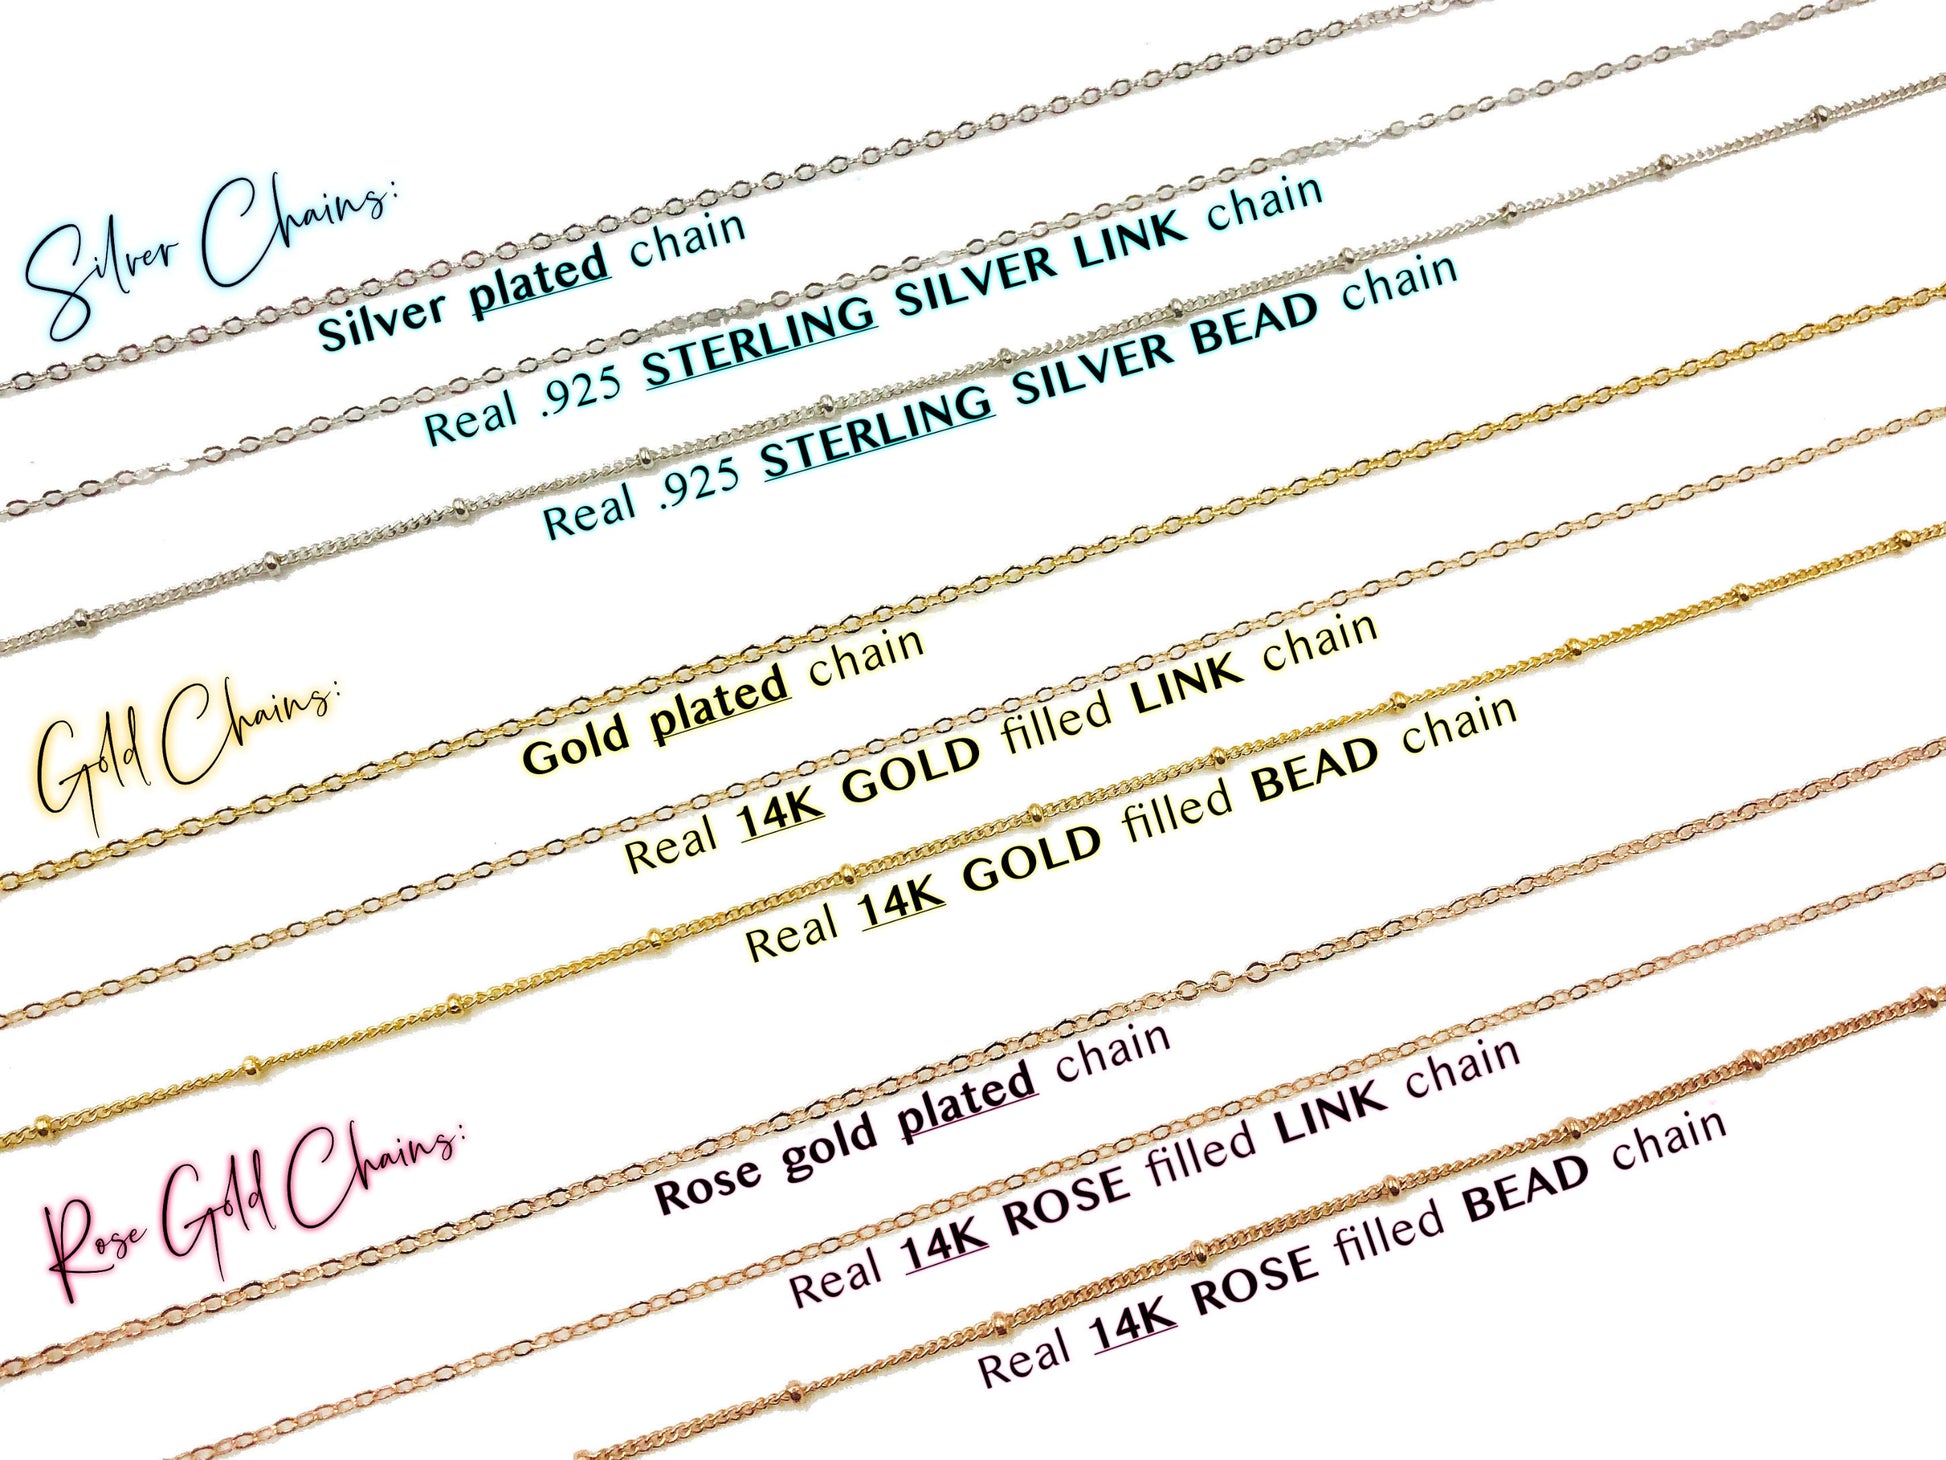 Silver Chains:
Silver plated chain
Real .925 STERLING SILVER LINK chain
Real .925 STERLING SILVER BEAD chain
Gold Chains:
Gold plated chain
Real 14K GOLD filled LINK chain
Real 14K GOLD filled BEAD chain
Rose Gold Chains:
Rose gold plated chain
Real 14K ROSE filled LINK chain
Real 14K ROSE filled BEAD chain